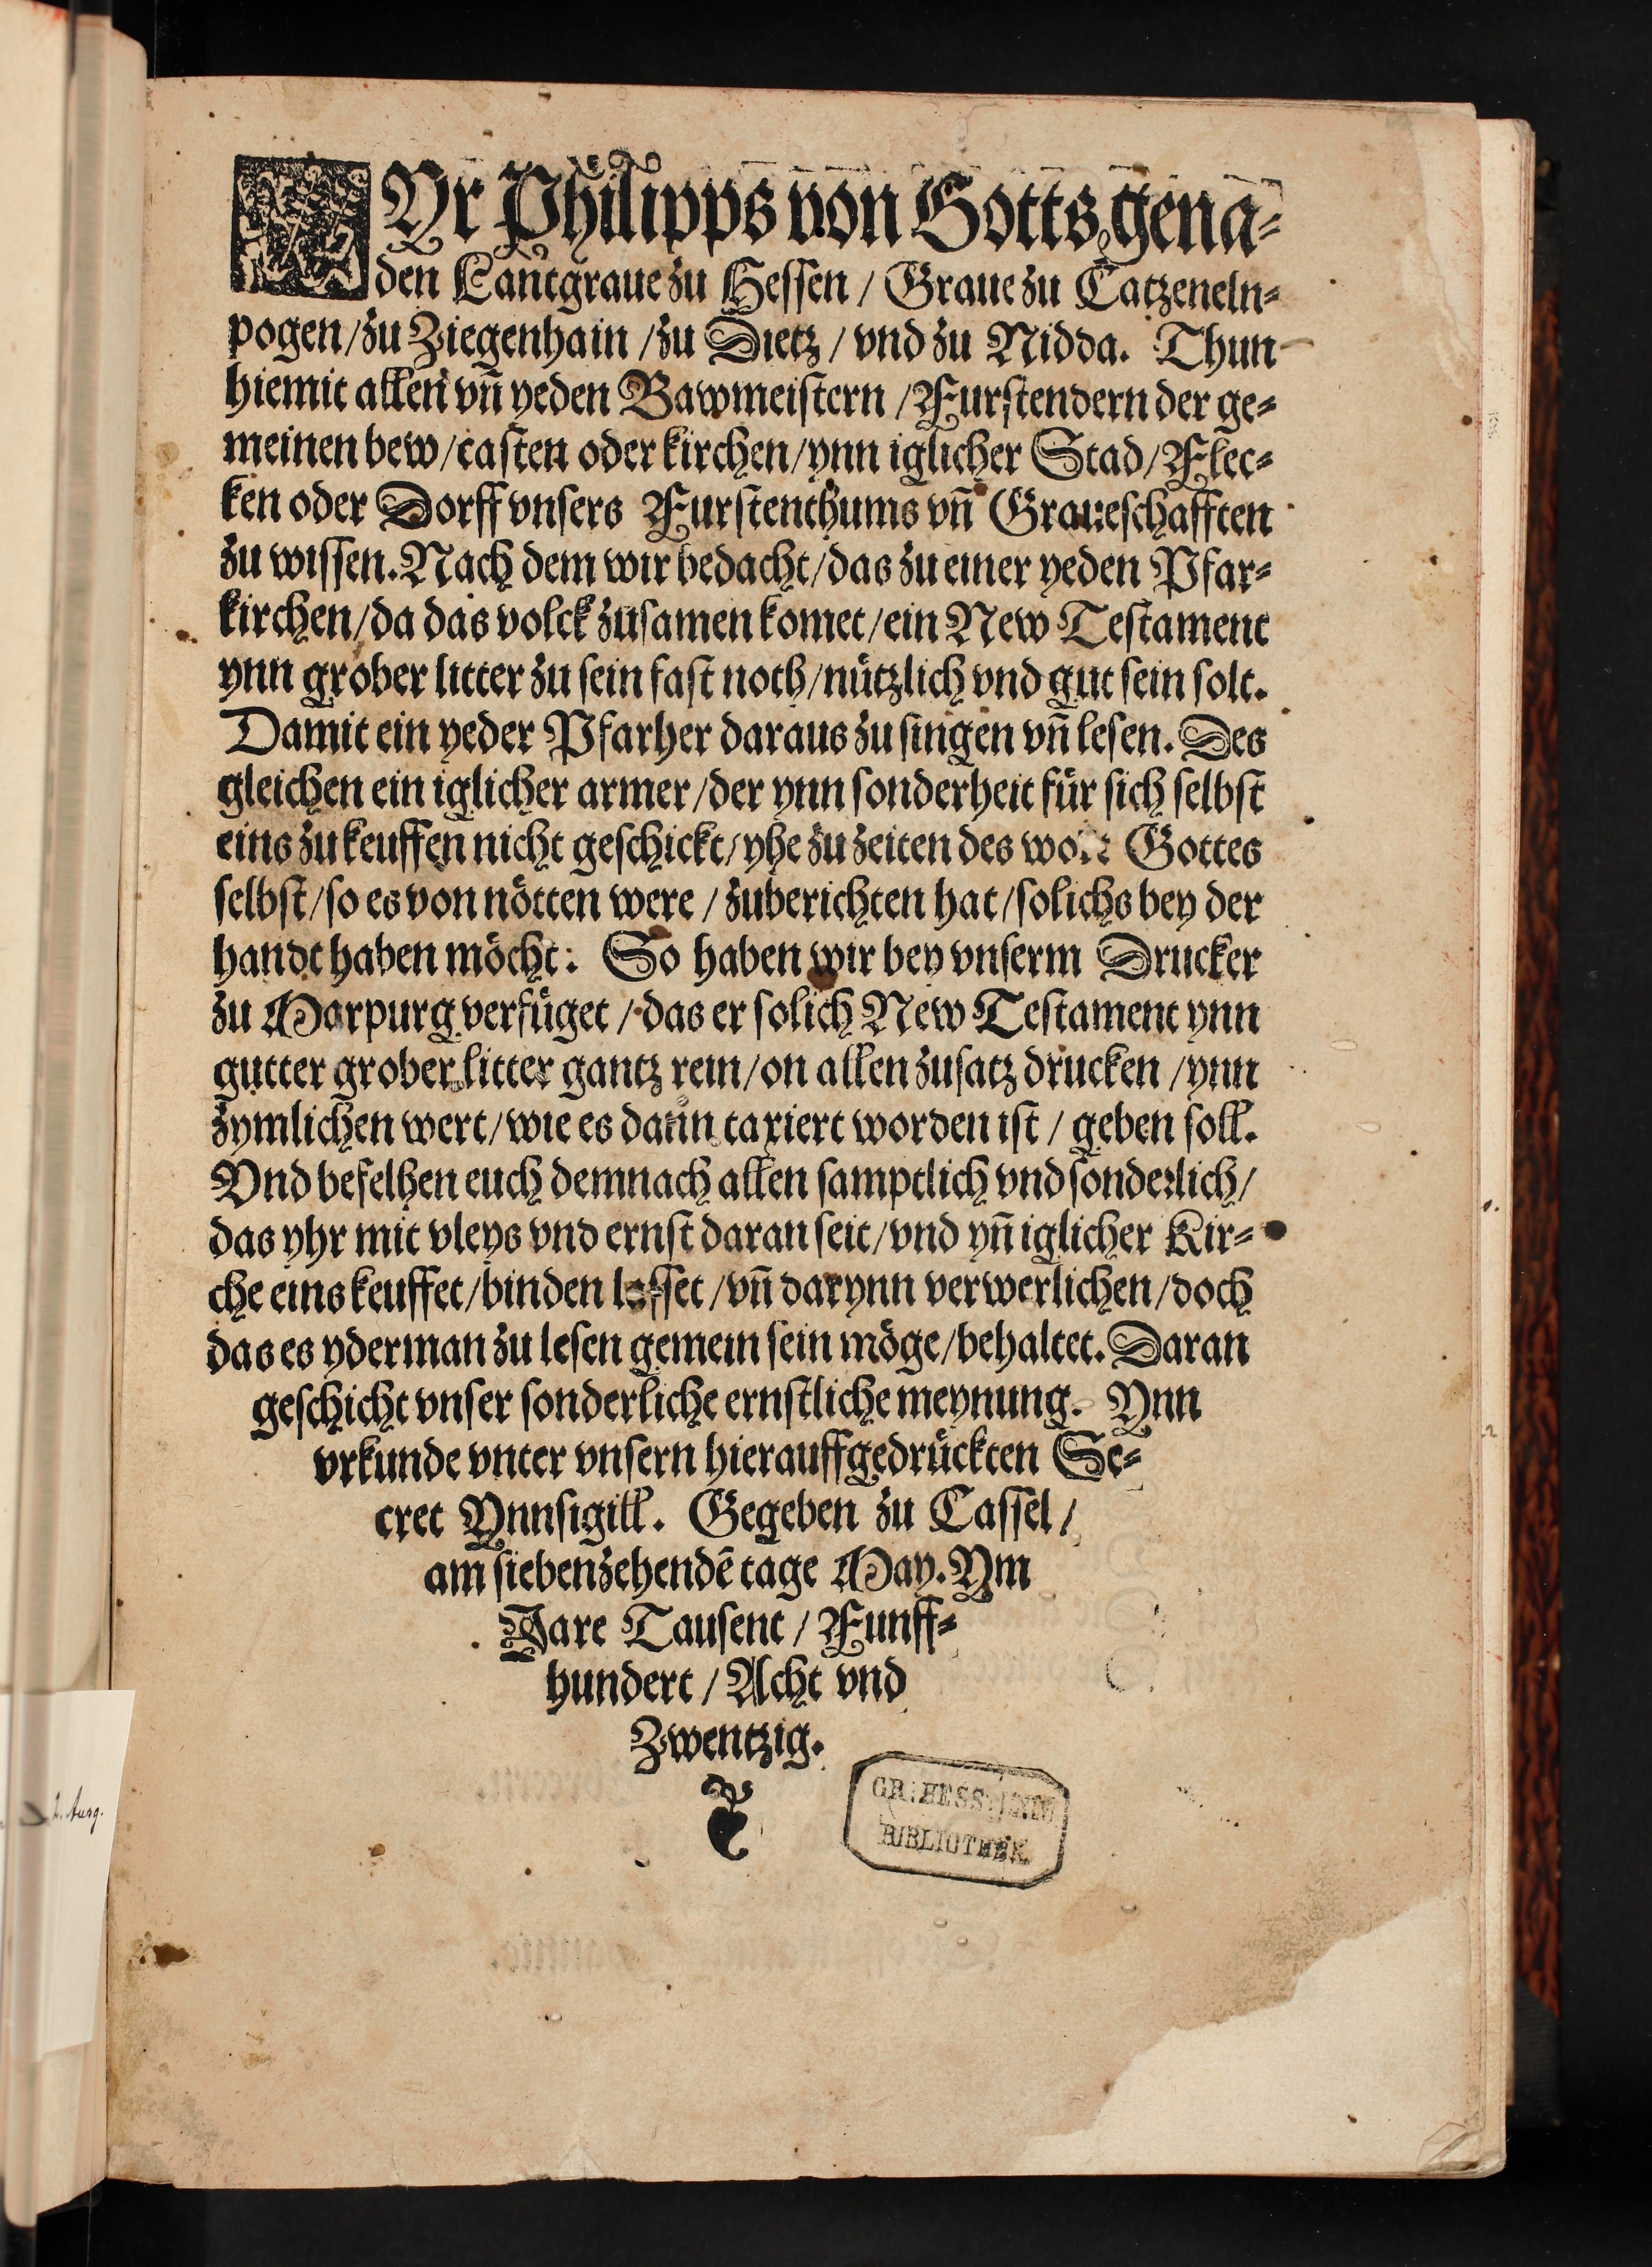 WYr Philipps von Gotts gena⸗
den Lantgraue zu Hessen / Graue zu Catzeneln⸗
pogen / zu Ziegenhain / zu Dietz / vnd zu Nidda. Thun
hiemit allen vñ yeden Bawmeistern / Furstendern der ge⸗
meinen bew / casten oder kirchen / ynn iglicher Stad / Flec⸗
ken oder Dorff vnsers Furstenthums vñ Graueschafften
zu wissen. Nach dem wir bedacht / das zu einer yeden Pfar⸗
kirchen / da das volck zusamen komet / ein New Testament
ynn grober litter zu sein fast noth / nützlich vnd gut sein solt.
Damit ein yeder Pfarher daraus zu singen vñ lesen. Des
gleichen ein iglicher armer / der ynn sonderheit für sich selbst
eins zu keuffen nicht geschickt / yhe zu zeiten des wort Gottes
selbst / so es von nötten were / zuberichten hat / solichs bey der
handt haben möcht: So haben wir bey vnserm Drucker
zu Marpurg verfüget / das er solich New Testament ynn
gutter grober litter gantz rein / on allen zusatz drucken / ynn
zymlichen wert / wie es dann taxiert worden ist / geben soll.
Vnd befelhen euch demnach allen samptlich vnd sonderlich /
das yhr mit vleys vnd ernst daran seit / vnd yñ iglicher Kir⸗
che eins keuffet / binden lasset / vñ darynn verwerlichen / doch
das es yderman zu lesen gemein sein möge / behaltet. Daran
geschicht vnser sonderliche ernstliche meynung. Ynn
vrkunde vnter vnsern hierauffgedrückten Se⸗
cret Ynnsigill. Gegeben zu Cassel /
am siebenzehendē tage May. Ym
Jare Tausent / Funff⸗
hundert / Acht vnd
Zwentzig.
GR: HESS: UNIV
BIBLIOTHEK.
2. Ausg.